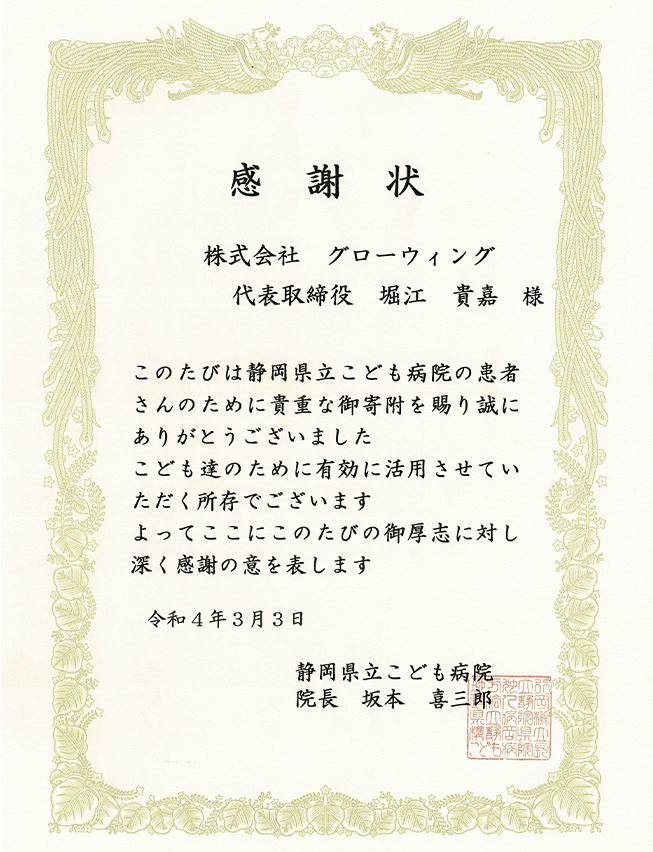 感謝状
株式会社 グローウィング
代表取締役 堀江 貴嘉 様
このたびは静岡県立こども病院の患者
さんのために貴重な御寄附を賜り誠に
ありがとうございました
こども達のために有効に活用させてい
ただく所存でございます
よってここにこのたびの御厚志に対し
深く感謝の意を表します
令和4年3月3日
静岡県立こども病院
院長 坂本 喜三郎